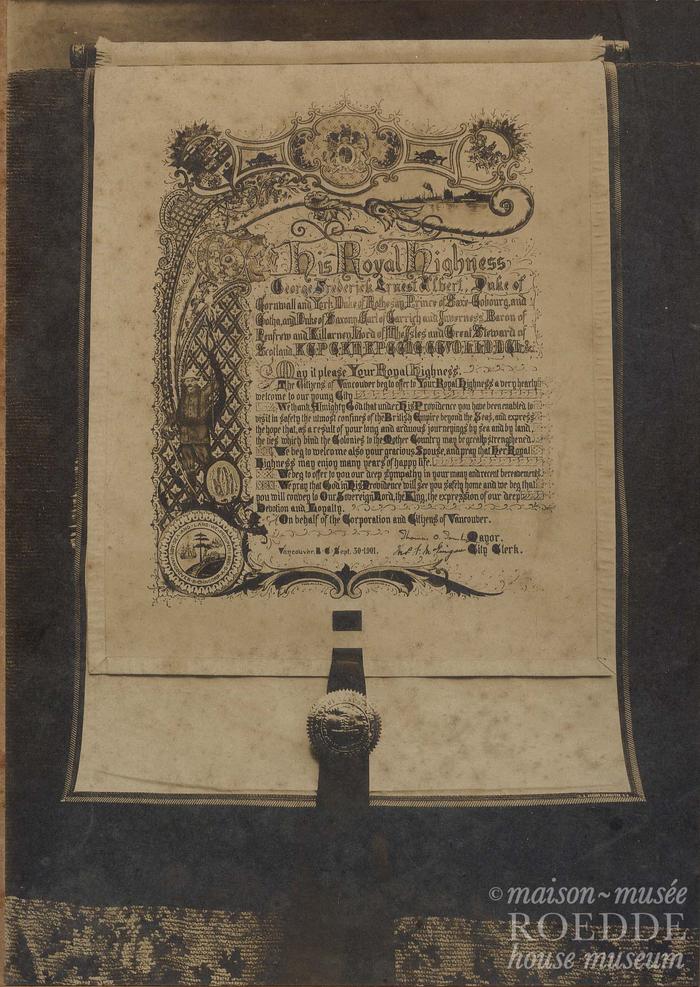 His Royal Highness
George Frederick Ernest Albert, Duke of
Cornwall and York, Duke of Rothesay, Prince of Saxe-Cobourg, and
Gotha, and Duke of Saxony, Earl of Carrich and Inverness, Baron of
Renfrew and Killarney, Lord of The Isles and Great Steward of
Scotland,
May it please Your Royal Highness.
The Citizens of Vancouver beg to offer to Your Royal Highness a very hearty
welcome to our young City.
We thank Almighty God that under His Providence you have been enabled to
visit in safety the utmost confines of the British Empire beyond the Seas, and express
the hope that, as a result of your long and arduous journeyings by sea and by land,
the ties which bind the Colonies to the Mother Country may be greatly strengthened.
We beg to welcome also your gracious Spouse, and pray that Her Royal
Highness may enjoy many years of happy life.
We beg to offer to you our deep sympathy in your many and recent bereavements.
We pray that God in His Providence will see you safely home and we beg that
you will convey to Our Sovereign Lord, the King, the expression of our deep
Devotion and Loyalty.
On behalf of the Corporation and Citizens of Vancouver.
Mayor.
Vancouver, B.C. Sept. 30-1901.
City Clerk.
© maison~musée
ROEDDE
house museum